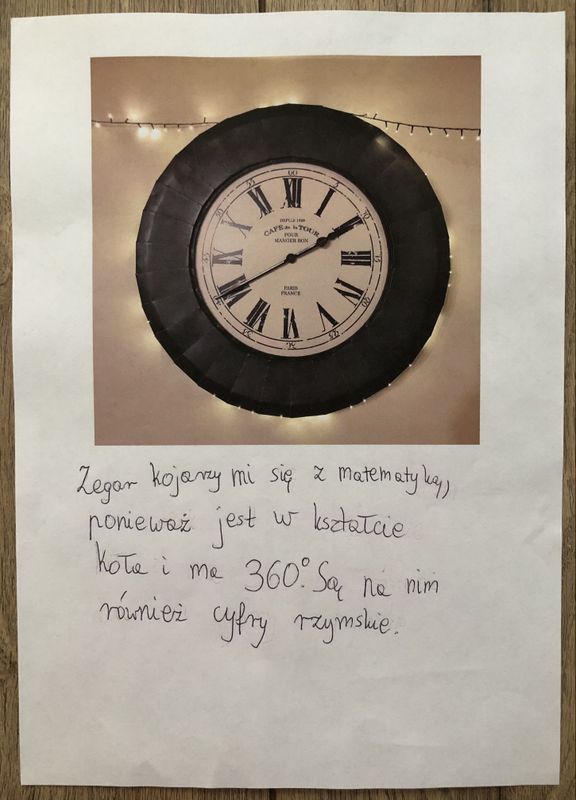 DEPUIS 1889
CAFÉ de la TOUR
POUR
MANGER BON
PARIS
FRANCE
Zegar kojarzy mi się z matematyką,
ponieważ jest w kształcie
koła i ma 360°. Są na nim
również cyfry rzymskie.